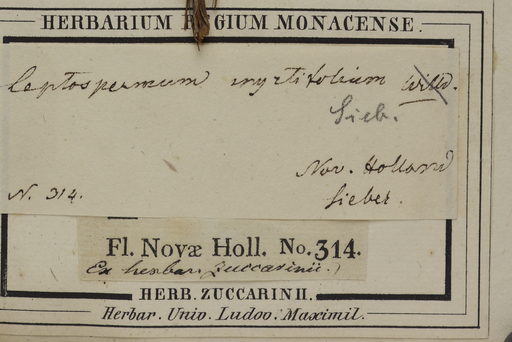 HERBARIUM REGIUM MONACENSE.
Leptospermum myrtifolium Willd.
Sieb.
Nov. Holland
N. 314.
Sieber.
Fl. Novæ Holl. No. 314.
Ex herbar. Zuccarinii.
HERB. ZUCCARINII.
Herbar. Univ. Ludov. Maximil.